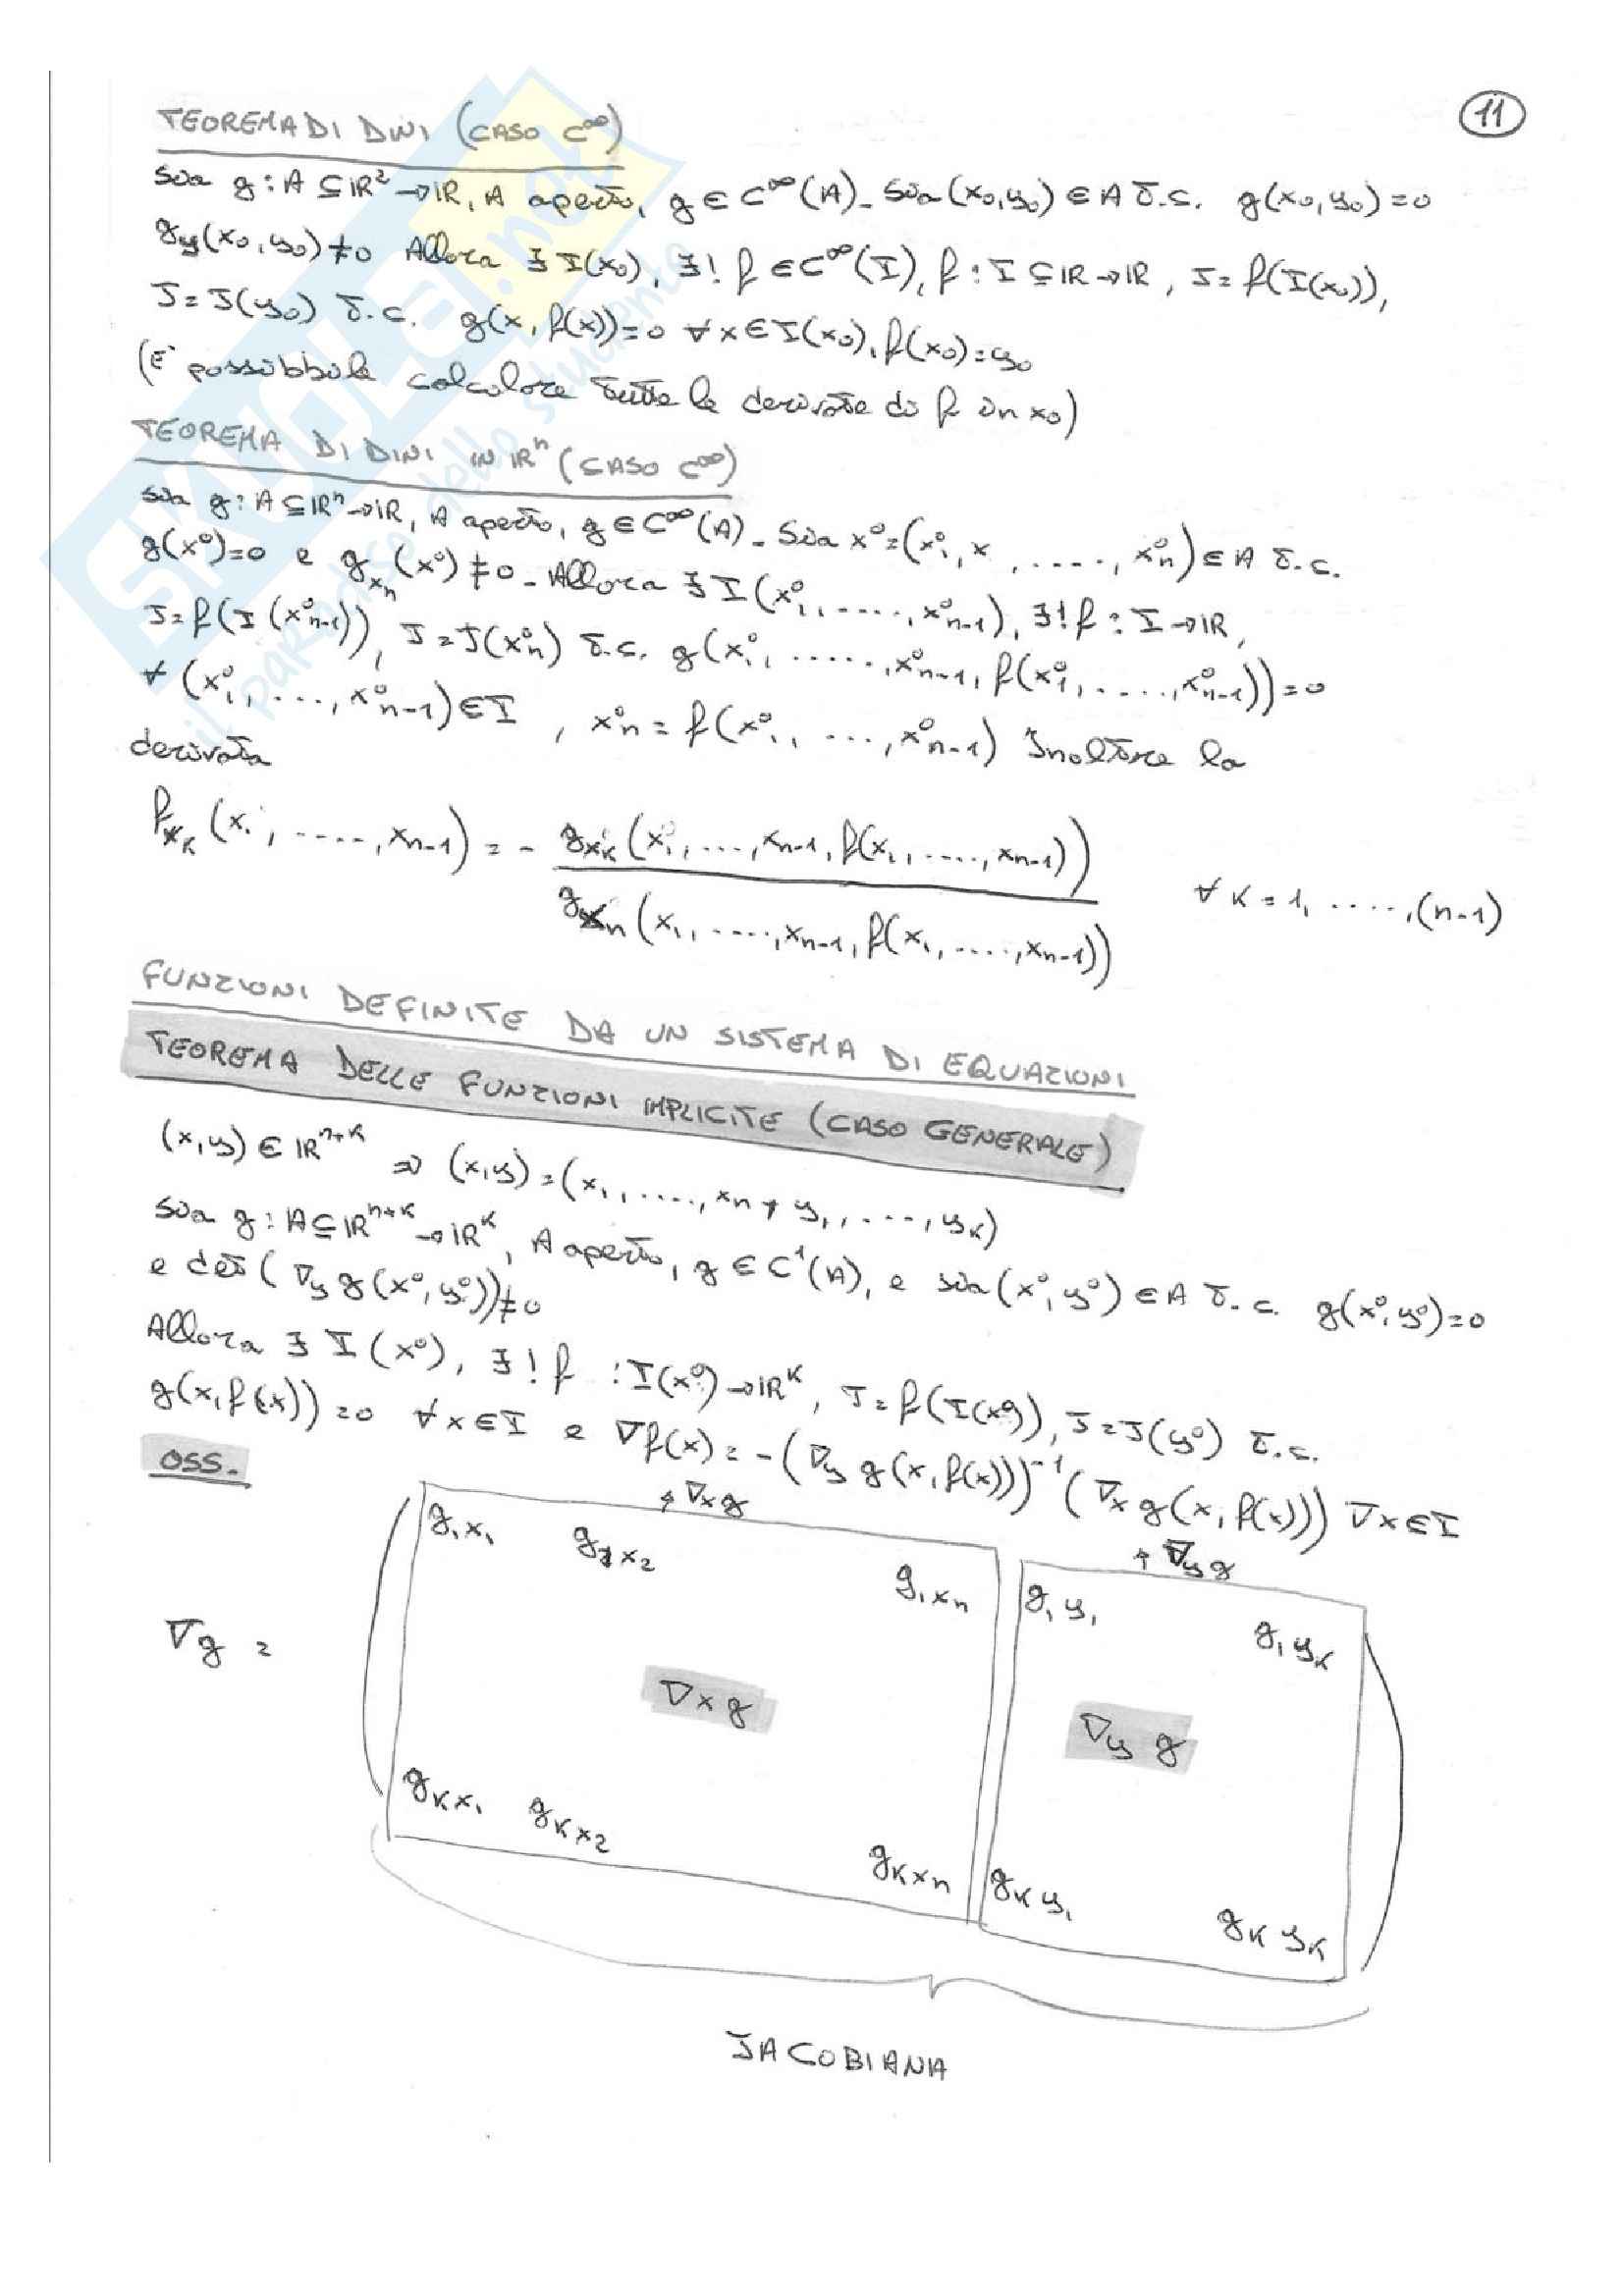 11
TEOREMA DI DINI (CASO C^∞)
Sia g: A ⊆ ℝ² → ℝ, A aperto, g ∈ C^∞(A). Sia (x₀,y₀) ∈ A t.c. g(x₀,y₀)=0
g_y(x₀,y₀) ≠ 0 Allora ∃ I(x₀), ∃! f ∈ C^∞(I), f: I ⊆ ℝ → ℝ, J = f(I(x₀)),
J = J(y₀) t.c. g(x, f(x)) = 0 ∀ x ∈ I(x₀), f(x₀) = y₀
(E' possibbile calcolare tutte le derivate di f in x₀)
TEOREMA DI DINI IN ℝⁿ (CASO C^∞)
Sia g: A ⊆ ℝⁿ → ℝ, A aperto, g ∈ C^∞(A). Sia x⁰ = (x₁⁰, x , ....., xₙ⁰) ∈ A t.c.
g(x⁰)=0 e g_xₙ(x⁰) ≠ 0. Allora ∃ I(x₁⁰, ....., x⁰ₙ₋₁), ∃! f: I → ℝ,
J = f(I(x⁰ₙ₋₁)), J = J(xₙ⁰) t.c. g(x₁⁰, ....., x⁰ₙ₋₁, f(x₁⁰, ....., x⁰ₙ₋₁)) = 0
∀ (x₁⁰, ...., x⁰ₙ₋₁) ∈ I , xₙ⁰ = f(x₁⁰, ...., x⁰ₙ₋₁) Inoltre la
derivata
f_xₖ(x₁, ....., xₙ₋₁) = - g_xₖ(x₁, ...., xₙ₋₁, f(x₁, ....., xₙ₋₁)) / g_xₙ(x₁, ....., xₙ₋₁, f(x₁, ....., xₙ₋₁)) ∀ K = 1, ....., (n-1)
FUNZIONI DEFINITE DA UN SISTEMA DI EQUAZIONI
TEOREMA DELLE FUNZIONI IMPLICITE (CASO GENERALE)
(x,y) ∈ ℝ^(n+K) ⇒ (x,y) = (x₁, ....., xₙ, y₁, ...., y_K)
Sia g: A ⊆ ℝ^(n+K) → ℝ^K, A aperto, g ∈ C¹(A), e sia (x⁰,y⁰) ∈ A t.c. g(x⁰,y⁰)=0
e det(∇_y g(x⁰,y⁰)) ≠ 0
Allora ∃ I(x⁰), ∃! f : I(x⁰) → ℝ^K, J = f(I(x⁰)), J = J(y⁰) t.c.
g(x, f(x)) = 0 ∀ x ∈ I e ∇f(x) = -(∇_y g(x, f(x)))⁻¹ (∇_x g(x, f(x))) ∇x ∈ I
OSS.
↑ ∇_x g
↑ ∇_y g
g₁x₁ g₁x₂ g₁xₙ g₁y₁ g₁y_K
∇g =
∇x g ∇_y g
g_K x₁ g_K x₂ g_K xₙ g_K y₁ g_K y_K
JACOBIANA
SKUOLA.net
il paradiso dello studente